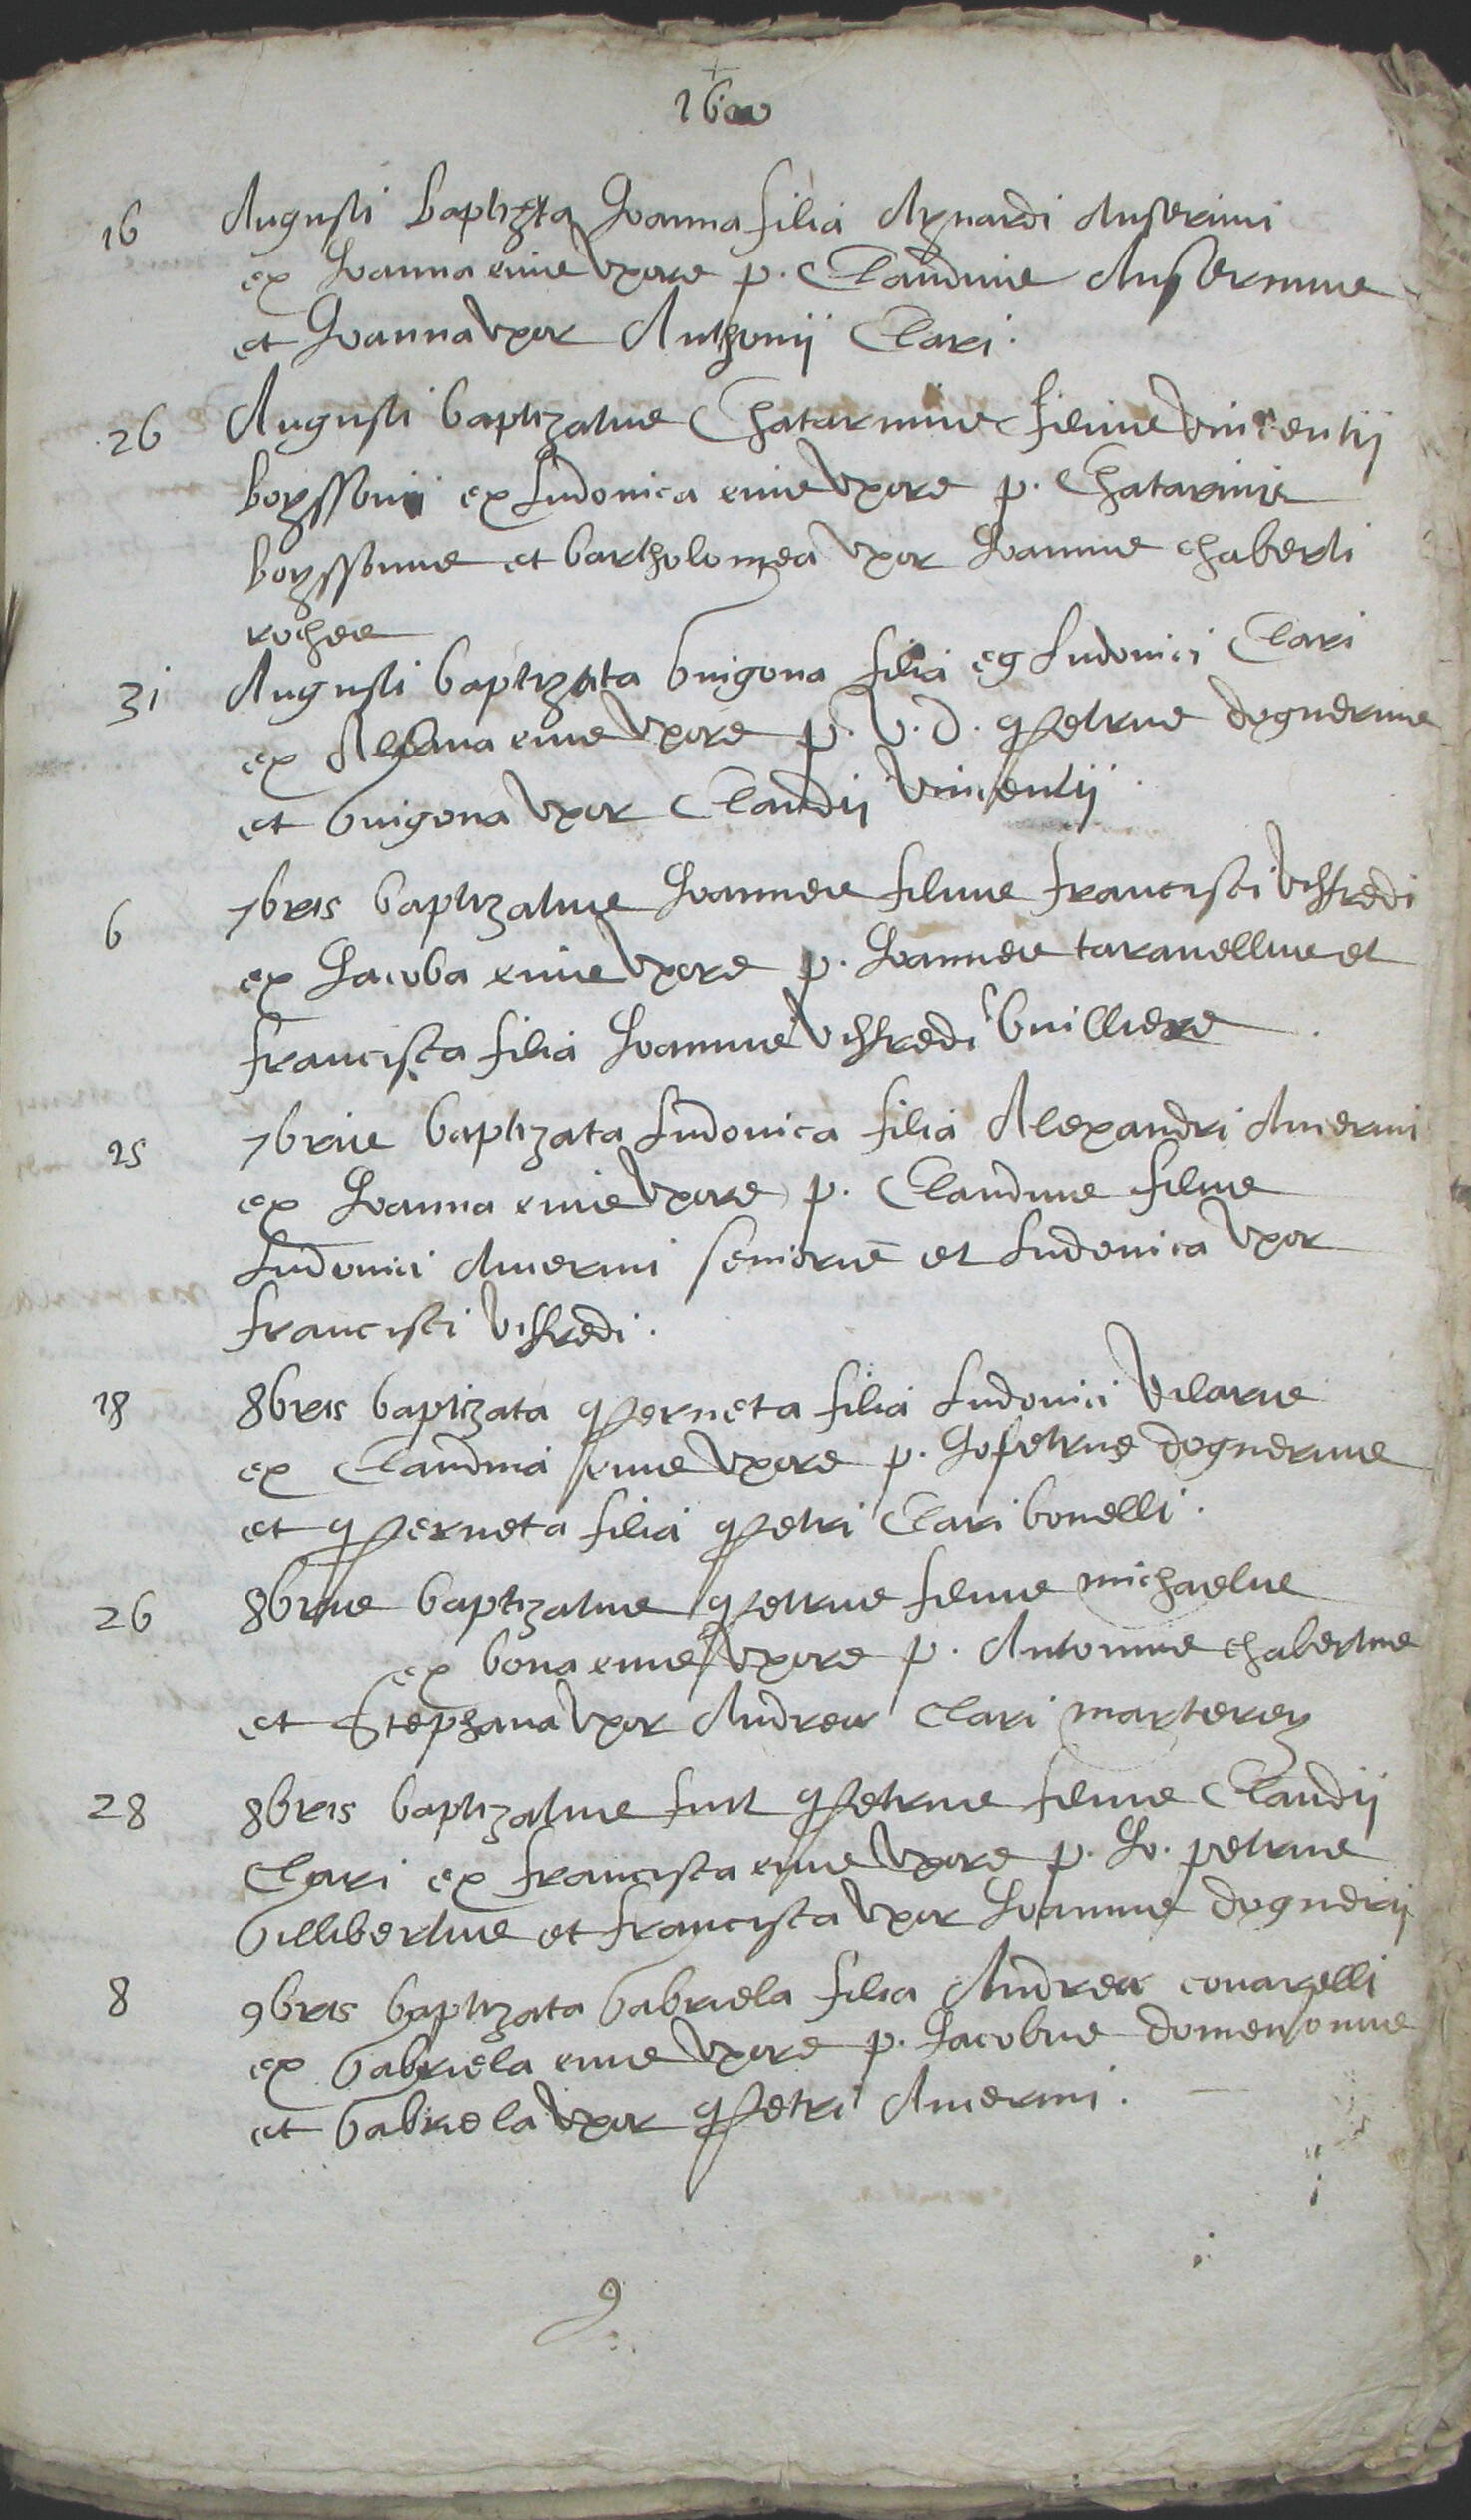 1600
16 Augusti baptizata Joanna filia Aynardi Anserimi
ex Joanna eius uxore p. Claudius Ansermus
et Joanna uxor Anthonii Clari.
26 Augusti baptizatus Chatarinus filius vincentii
boyssonii ex Ludovica eius uxore p. Chatarinus
boyssonus et bartholomea uxor Joannis chaberti
rochee
31 Augusti baptizata Guigona filia eg Ludovici Clari
ex eius uxore p. V. D. petrus dognerius
et Guigona uxor Claudii vincentii
6 7bris baptizatus Joannes filius francisci viffredi
ex Jacoba eius uxore p. Joannes taravellus et
francisca filia Joannis viffredi Guilliere
25 7bris baptizata Ludovica filia Alexandri Avierini
ex Joanna eius uxore p. Claudius filius
Ludovici Avierini senioris et Ludovica uxor
francisci viffredi.
18 8bris baptizata perneta filia Ludovici vilaris
ex Claudia eius uxore p. Jo petrus dognerius
et perneta filia petri Clari bonelli.
26 8bris baptizatus petrus filius michaelis
ex bona eius uxore p. Antonius chabertus
et Stephana uxor Andree Clari marterey
28 8bris baptizatus fuit petrus filius Claudii
Clari ex francisca eius uxore p. Jo. petrus
Gillibertus et francisca uxor Joannis dognerii
8 9bris baptizata Gabriela filia Andree covarelli
ex Gabriela eius uxore p. Jacobus domenonus
et Gabriela uxor petri Avierini.